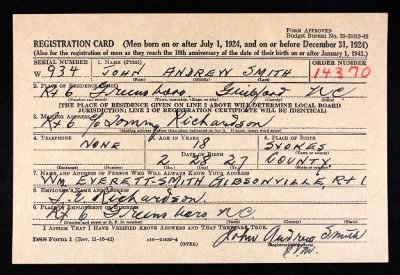 FORM APPROVED
Budget Bureau No. 33-R012-42
REGISTRATION CARD (Men born on or after July 1, 1924, and on or before December 31, 1924)
(Also for the registration of men as they reach the 18th anniversary of the date of their birth on or after January 1, 1943.)
SERIAL NUMBER 1. NAME (Print) ORDER NUMBER
W 934 JOHN ANDREW SMITH 14370
2. PLACE OF RESIDENCE (Print)
Rt 6 Greensboro Guilford N.C
(Number and street) (Town, township, village, or city) (County) (State)
[THE PLACE OF RESIDENCE GIVEN ON LINE 2 ABOVE WILL DETERMINE LOCAL BOARD
JURISDICTION; LINE 2 OF REGISTRATION CERTIFICATE WILL BE IDENTICAL]
3. MAILING ADDRESS
Rt 6 % Tommy Richardson
[Mailing address if other than place indicated on line 2. If same, insert word same]
4. TELEPHONE 5. AGE IN YEARS 6. PLACE OF BIRTH
NONE 18 STOKES
DATE OF BIRTH
2 28 27 COUNTY
7. NAME AND ADDRESS OF PERSON WHO WILL ALWAYS KNOW YOUR ADDRESS
WM. EVERETT-SMITH GIBSONVILLE, Rt 1
8. EMPLOYER'S NAME AND ADDRESS
Richardson
9. PLACE OF EMPLOYMENT OR BUSINESS
Rt 6 Greensboro N.C.
I AFFIRM THAT I HAVE VERIFIED ABOVE ANSWERS AND THAT THEY ARE TRUE.
DSS Form 1 (Rev. 11-16-42) (OVER)
John Andrew Smith
(Registrant's signature)